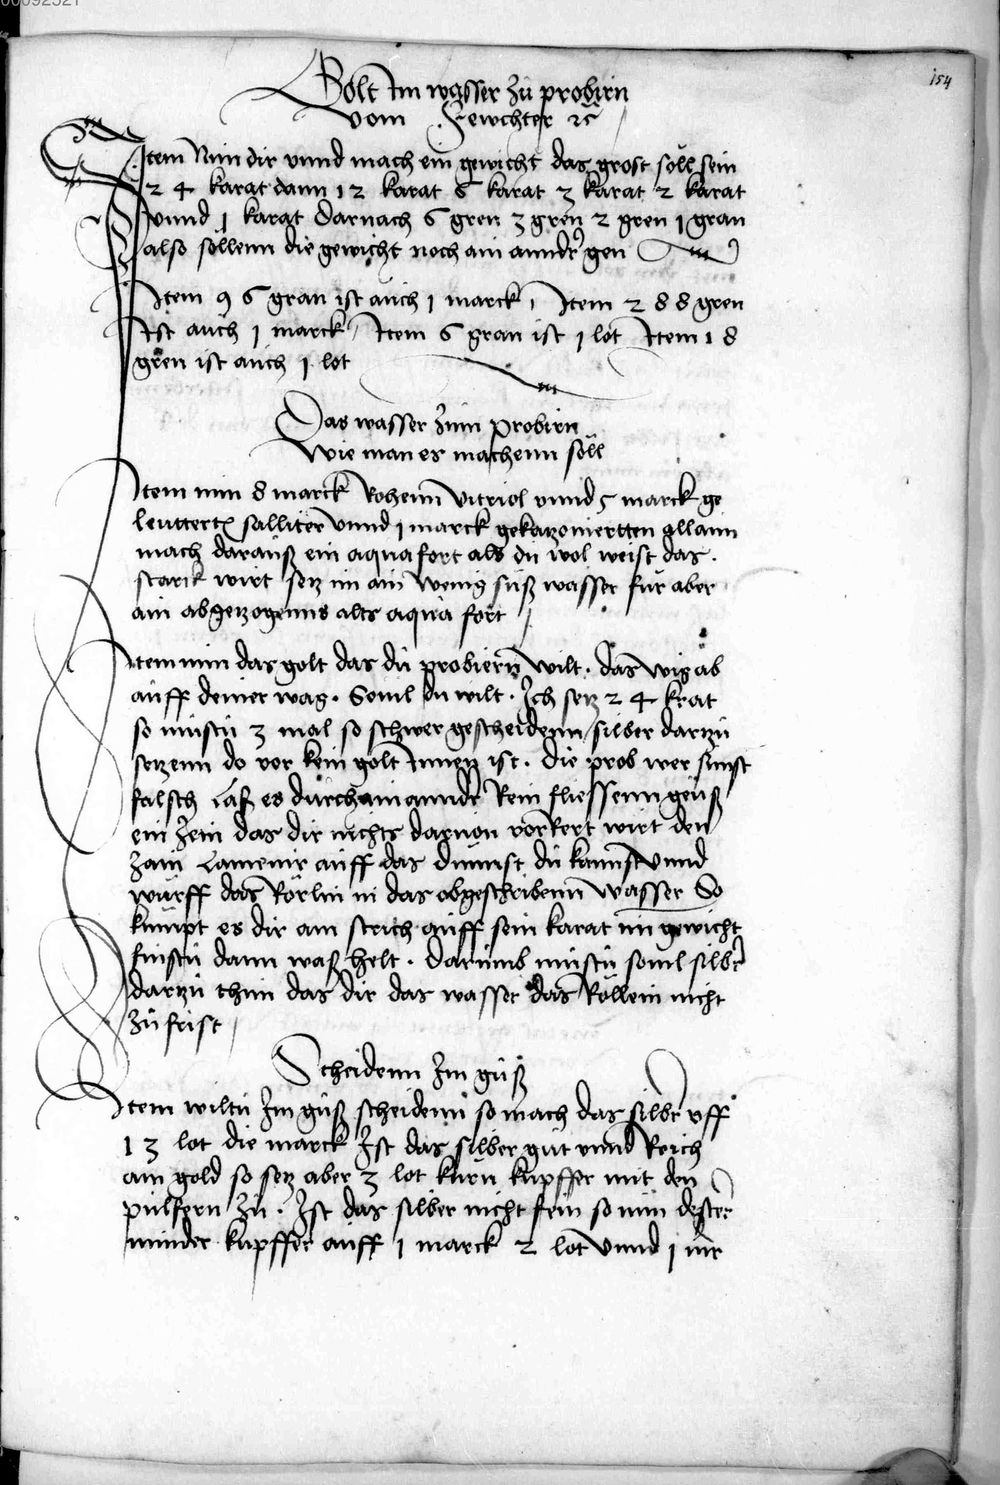 00092521
154
Golt Im wasser zu probirn
vom Fewchter ꝛc
Item Nim dir vnnd mach ein gewicht das grost soll sein
24 karat dann 12 karat 6 karat 3 karat 2 karat
vnnd 1 karat Darnach 6 gren 3 gren 2 gren 1 gran
also sollenn die gewicht noch ain anndr gen
Item 96 gran ist auch 1 marck, Item 288 gren
Ist auch 1 marck, Item 6 gran ist 1 lot Item 18
gren ist auch 1 lot
Das wasser zum probirn
Wie man es machenn söll
Item nim 8 marck Rohenn vitriol vnnd 5 marck ge
leuttertz salliter vnnd 1 marck gekatzomiertten allaun
mach darauß ein aquafort als du wol weist das
starck wirt setz im ain wenig süß wasser für aber
ain abgetzogenns alts aqua fort
Item nim das golt das du probiern wilt. das wig ab
auff deiner wag. Souil du wilt. Ich setz 24 krat
so mustu 3 mal so schwer gescheidenn silber dartzu
setzenn do vor kein golt Innen ist. die prob wer sunst
falsch Laß es durch ainanndr Rein fliessenn geuß
ein Zein das dir nichts daruon vorkert wirt den
Zain Lamenir auff das dunnst du kannst vnnd
würff das Rörlin in das obgeschribenn wasser So
kumpt es dir am strich auff sein karat im gewicht
finstu dann waß helt. Darumb mustu souil silbr
dartzu thun das dir das wasser das Röllein nicht
zu frist
Scheidenn Im guß
Item wiltu Im guß scheidenn so mach das silbr vff
13 lot die marck Ist das silber gut vnnd Reich
am gold so setz aber 3 lot kürn kupffer mit den
pulfern zu. Ist das silber nicht fein so nim dester
minder kupffer auff 1 marck 2 lot vnnd 1 mr